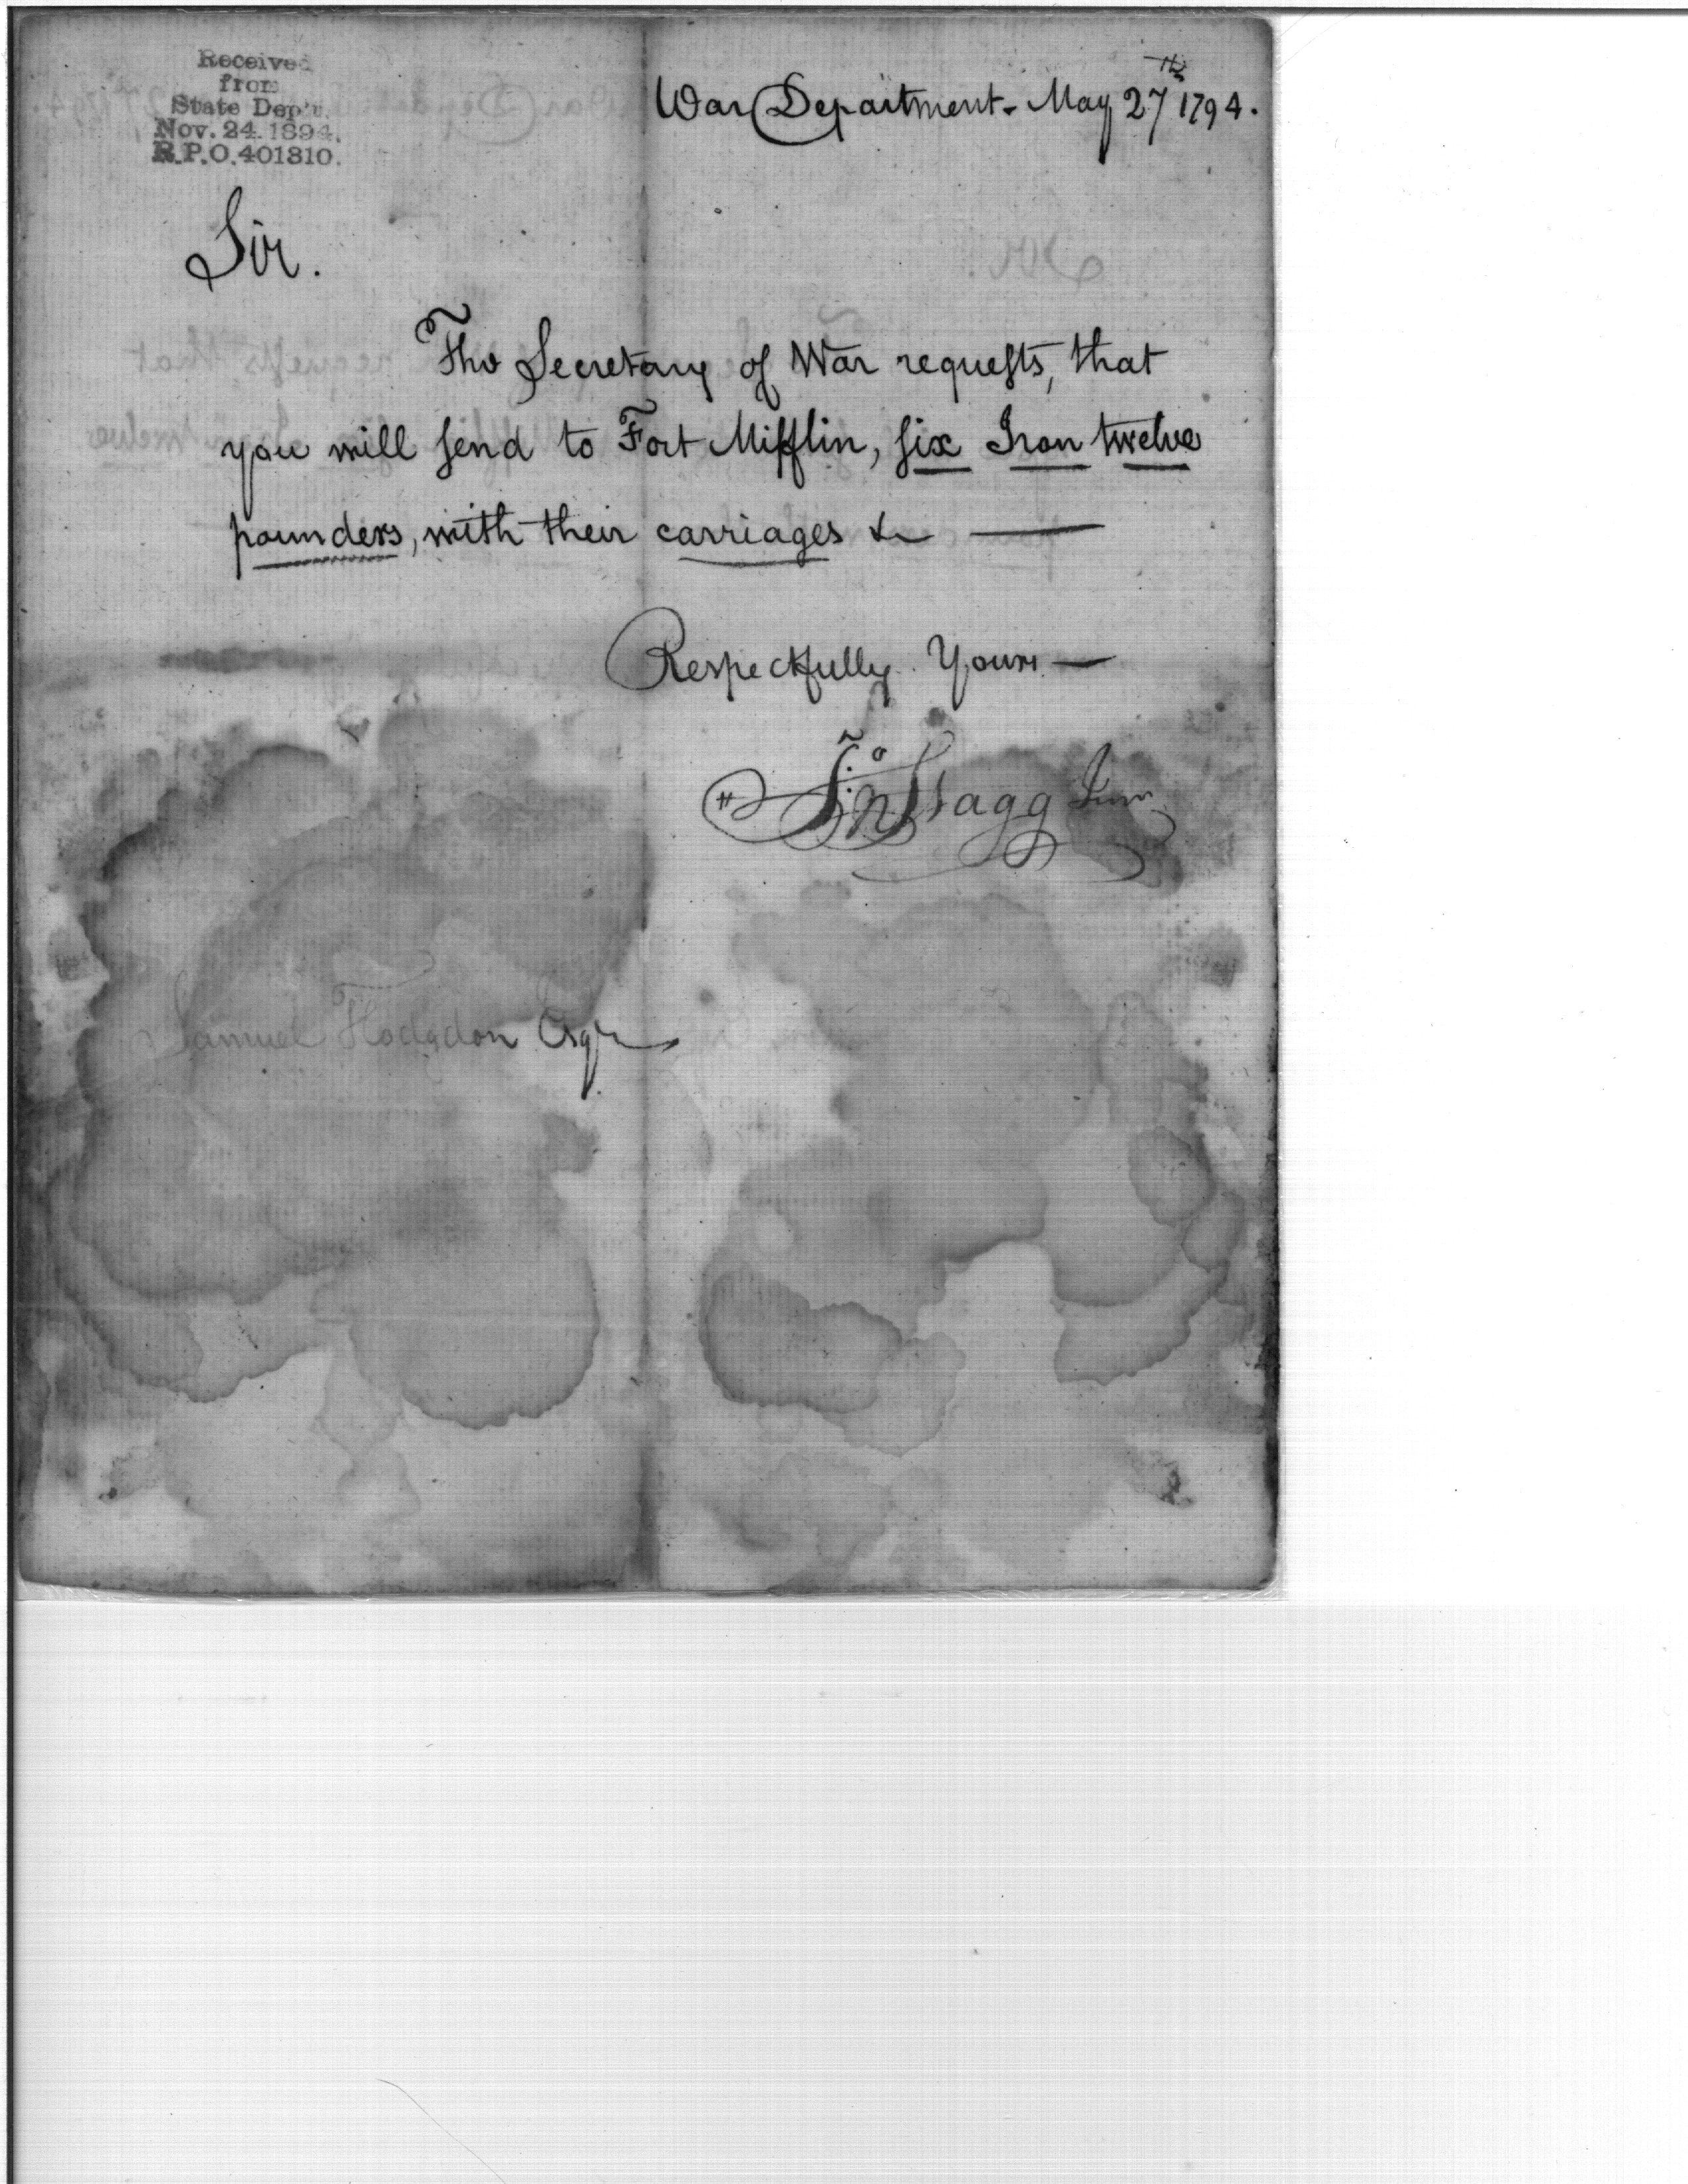 Received
from
State Dep't.
Nov. 24. 1894.
R.P.O. 401810.
War Department. May 27th 1794.
Sir.
The Secretary of War requests, that
you will send to Fort Mifflin, six Iron twelve
pounders, with their carriages &c
Respectfully Yours
Jno Stagg Junr
Samuel Hodgdon Esqr